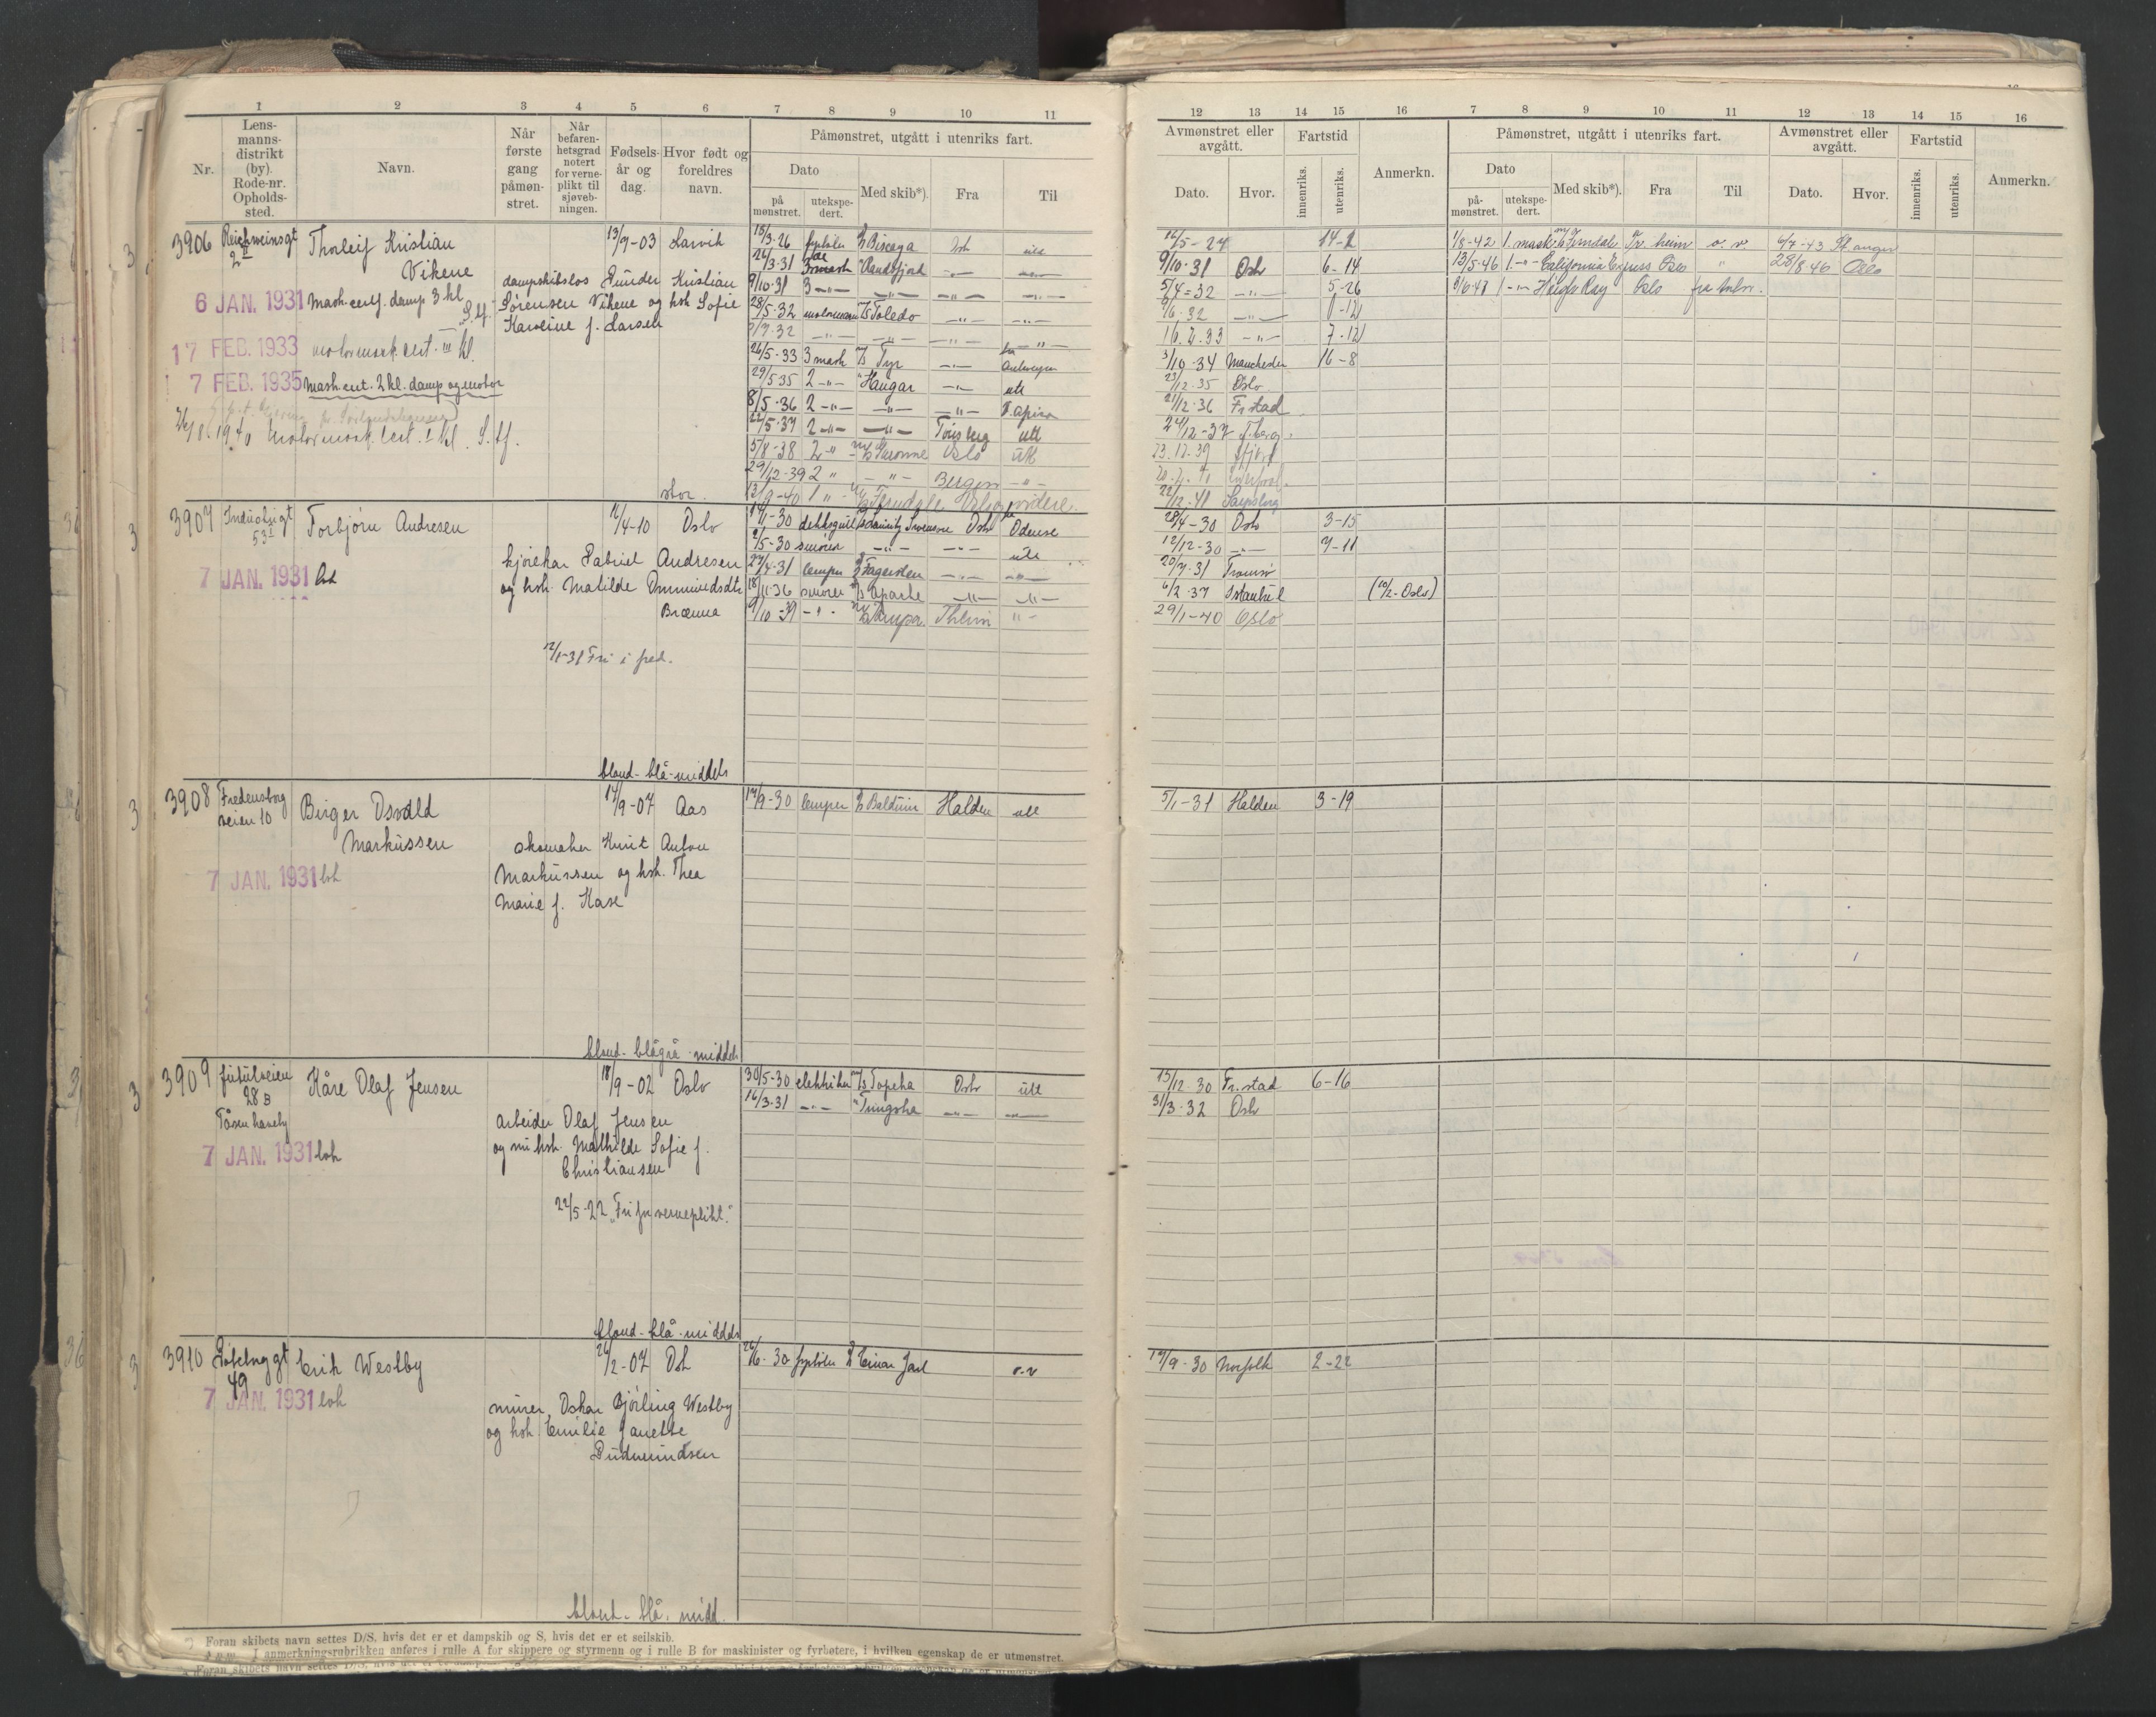 1 2 3 4 5 6 7 8 9 10 11
Nr.
Lens-
manns-
distrikt
(by).
Rode-nr.
Opholds-
sted.
Navn.
Når
første
gang
påmøn-
stret.
Når
befaren-
hetsgrad
notert
for verne-
plikt til
sjøveb-
ningen.
Fødsels-
år og
dag.
Hvor født og
foreldres
navn.
Påmønstret, utgått i utenriks fart.
Dato
på
mønstret.
utekspe-
dert.
Med skib*).
Fra
Til
3906 Reichweinsgt 2 II Thorleif Kristian Vikene 13/9-03 Larvik
dampskibslos Gunder Kristian
Sørensen Vikene og hst Sofie
Karoline f. Larsen
6 JAN. 1931 mask.cert. damp 3 kl
17 FEB. 1933 motormask.cert. III kl.
7 FEB. 1935 mask.cert. 2 kl. damp og motor
1940 Motormask. cert. I kl. S.tf.
stor.
15/3-26 fyrbøter Biscaya Oslo ute
26/3.31 3 mask Randsfjord -"- -"-
9/10-31 3 -"- -"- -"- -"-
28/5-32 motormann Toledo -"- -"-
-"- -"- -"- -"-
26/5-33 3 mask Tyr -"- Antwerpen
29/5 35 2 -"- Haugar -"- ute
8/5-36 2 -"- -"- -"-
22/5-37 2 -"- -"- Tønsberg ute
5/8-38 2 -"- Garonne Oslo ute
29/12-39 2 " -"- Bergen -"-
13/9-40 1 " Ferndale Oslo videre.
3907 Industrigt 53 I Torbjørn Andresen 12/4-10 Oslo
kjørekar Gabriel Andresen
og hst. Matilde Ommundsdtr
Brænna
7 JAN. 1931
12/1-31 Fri i fred.
blond-blå-middels
14/1-30 dekksgutt Oslo Odense
2/5-30 smører -"- -"- ute
27/4-31 lemper Fagersten -"- -"-
18/11-36 smører Apache -"- -"-
9/10-39 -"- Tampa Theim "-
3908 Fredensborg veien 10 Birger Osvald Markussen 14/9-07 Aas
skomaker Knut Anton
Markussen og hst. Thea
Marie f. Kase
7 JAN. 1931
blond-blågrå-middels
17/9-30 lemper Balduin Halden ute
3909 Jutulveien 28 B Tåsen haveby Kåre Olaf Jensen 18/9-02 Oslo
arbeider Olaf Jensen
og hst. Mathilde Sofie f.
Christiansen
7 JAN. 1931
22/5-22 "Fri for verneplikt."
blond-blå-middels
30/5-30 elektriker Topeka Oslo ute
16/3-31 -"- Tungsha -"- -"-
3910 49 Erik Westby 26/2-07 Oslo
murer Oskar Bjørling Westby
og hst Emilie Janette
Gudmundsen
7 JAN. 1931
blond-blå-midd.
26/6-30 fyrbøter Einar Jarl o.v
Foran skibets navn settes D/S, hvis det er et dampskib og S, hvis det er et seilskib.
I anmerkningsrubrikken anføres i rulle A for skippere og styrmenn og i rulle B for maskinister og fyrbøtere, i hvilken egenskap de er utmønstret.
12 13 14 15 16 7 8 9 10 11 12 13 14 15 16
Avmønstret eller
avgått.
Dato.
Hvor.
Fartstid
innenriks.
utenriks.
Anmerkn.
Påmønstret, utgått i utenriks fart.
Dato
på-
mønstret.
utekspe-
dert.
Med skib*).
Fra
Til
Avmønstret eller
avgått.
Dato.
Hvor.
Fartstid
innenriks.
utenriks.
Anmerkn.
12/5-27 14-2 1/8-42 1. mask Ferndale Tr.heim o. v. 6/7-43 St.anger
9/10-31 Oslo 6-14 13/5-46 1.-"- California Express Oslo " 28/8 46 Oslo
5/4-32 -"- 5-26 1 -"- Høegh Ray Oslo
-"-
16.2.33 -"- 7-12
3/10-34 Manchester 16-8
23/12-35 Oslo
21/12-36 Fr.stad
24/12-37 T.berg
23.12.39
22/12-41 Sarpsborg
28/4-30 Oslo 3-15
12/12-30 -"- 7-11
20/7-31 Tromsø
6/2-37 Istanbul (10/2-Oslo)
29/1-40 Oslo
5/1-31 Halden 3-19
15/12-30 Fr.stad 6-16
31/3-32 Oslo
17/9-30 Norfolk 2-22